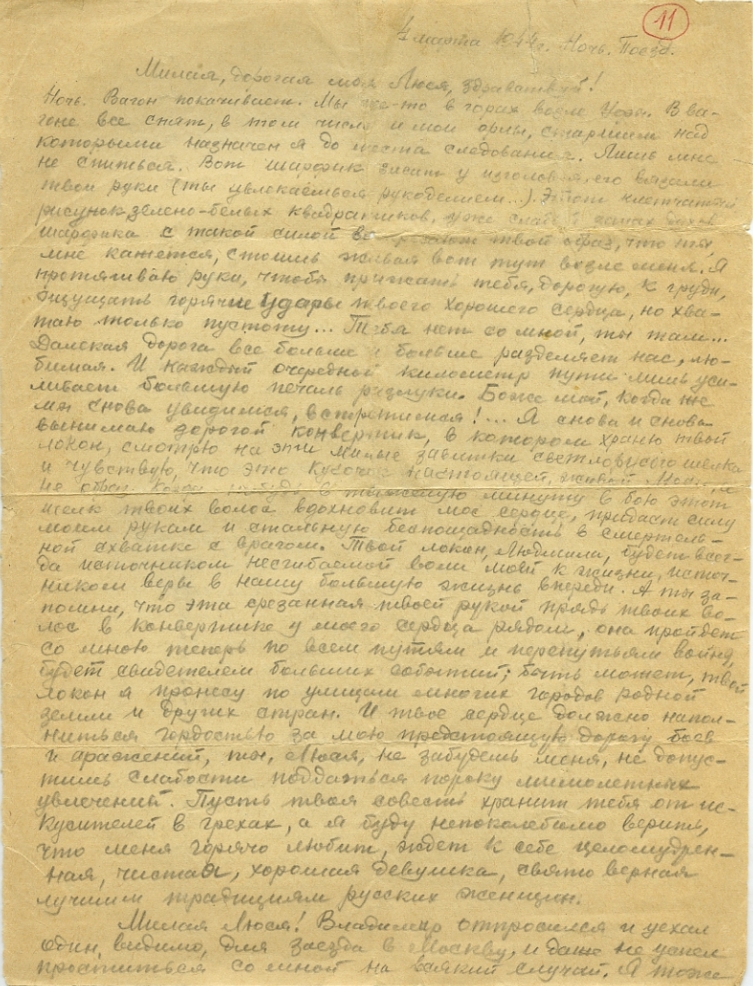 11
4 марта 1944г. Ночь. Поезд.
Милая, дорогая моя Люся, здравствуй!
Ночь. Вагон покачивает. Мы где-то в горах возле Уфы. В ва-
гоне все спят, в том числе и мои орлы, старшим над
которыми назначен я до места следования. Лишь мне
не спиться. Вот шарфик висит у изголовья, его вязали
твои руки (ты увлекаешься рукоделием...). Этот клетчатый
рисунок зелено-белых квадратиков, уже слабый запах
шарфика с такой силой твой образ, что ты,
мне кажется, стоишь живая вот тут возле меня. Я
протягиваю руки, чтобы прижать тебя, дорогую, к груди,
ощущать горячие удары твоего хорошего сердца, но хва-
таю только пустоту... Тебя нет со мной, ты там...
Далекая дорога все больше и больше разделяет нас, лю-
бимая. И каждый очередной километр пути лишь уси-
ливает большую печаль разлуки. Боже мой, когда же
мы снова увидимся, встретимся!... Я снова и снова
вынимаю дорогой конвертик, в котором храню твой
локон, смотрю на эти милые завитки светлорусого шелка
и чувствую, что это кусочек настоящей, живой
в тяжелую минуту в бою этот
шелк твоих волос вдохновит мое сердце, придаст силу
моим рукам и стальную беспощадность в смертель-
ной схватке с врагом. Твой локон, Людмила, будет всег-
да источником несгибаемой воли моей к жизни, источ-
ником веры в нашу большую жизнь впереди. А ты за-
помни, что эта срезанная твоей рукой прядь твоих во-
лос в конвертике у моего сердца рядом, она пройдет
со мною теперь по всем путям и перепутьям войны,
будет свидетелем больших событий; быть может, твой
локон я пронесу по улицам многих городов родной
земли и других стран. И твое сердце должно напол-
ниться гордостью за мою предстоящую дорогу боев
и сражений, ты, Люся, не забудешь меня, не допус-
тишь слабости поддаться пороку мимолетных
увлечений. Пусть твоя совесть хранит тебя от ис-
кусителей в грехах, а я буду непоколебимо верить,
что меня горячо любит, ждет к себе целомудрен-
ная, чистая, хорошая девушка, свято верная
лучшим традициям русских женщин.
Милая Люся! Владимир отпросился и уехал
один, видимо, для заезда в Москву, и даже не успел
проститься со мной на всякий случай. Я тоже